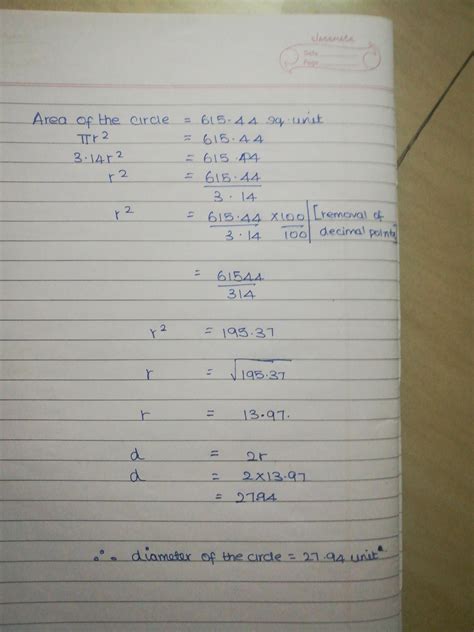 Date
Page
Area of the circle = 615.44 sq. unit
πr² = 615.44
3.14r² = 615.44
r² = 615.44/3.14
r² = 615.44/3.14 × 100/100 [removal of decimal points]
= 61544/314
r² = 195.37
r = √195.37
r = 13.97.
d = 2r
d = 2×13.97
= 27.94
∴ diameter of the circle = 27.94 unit.